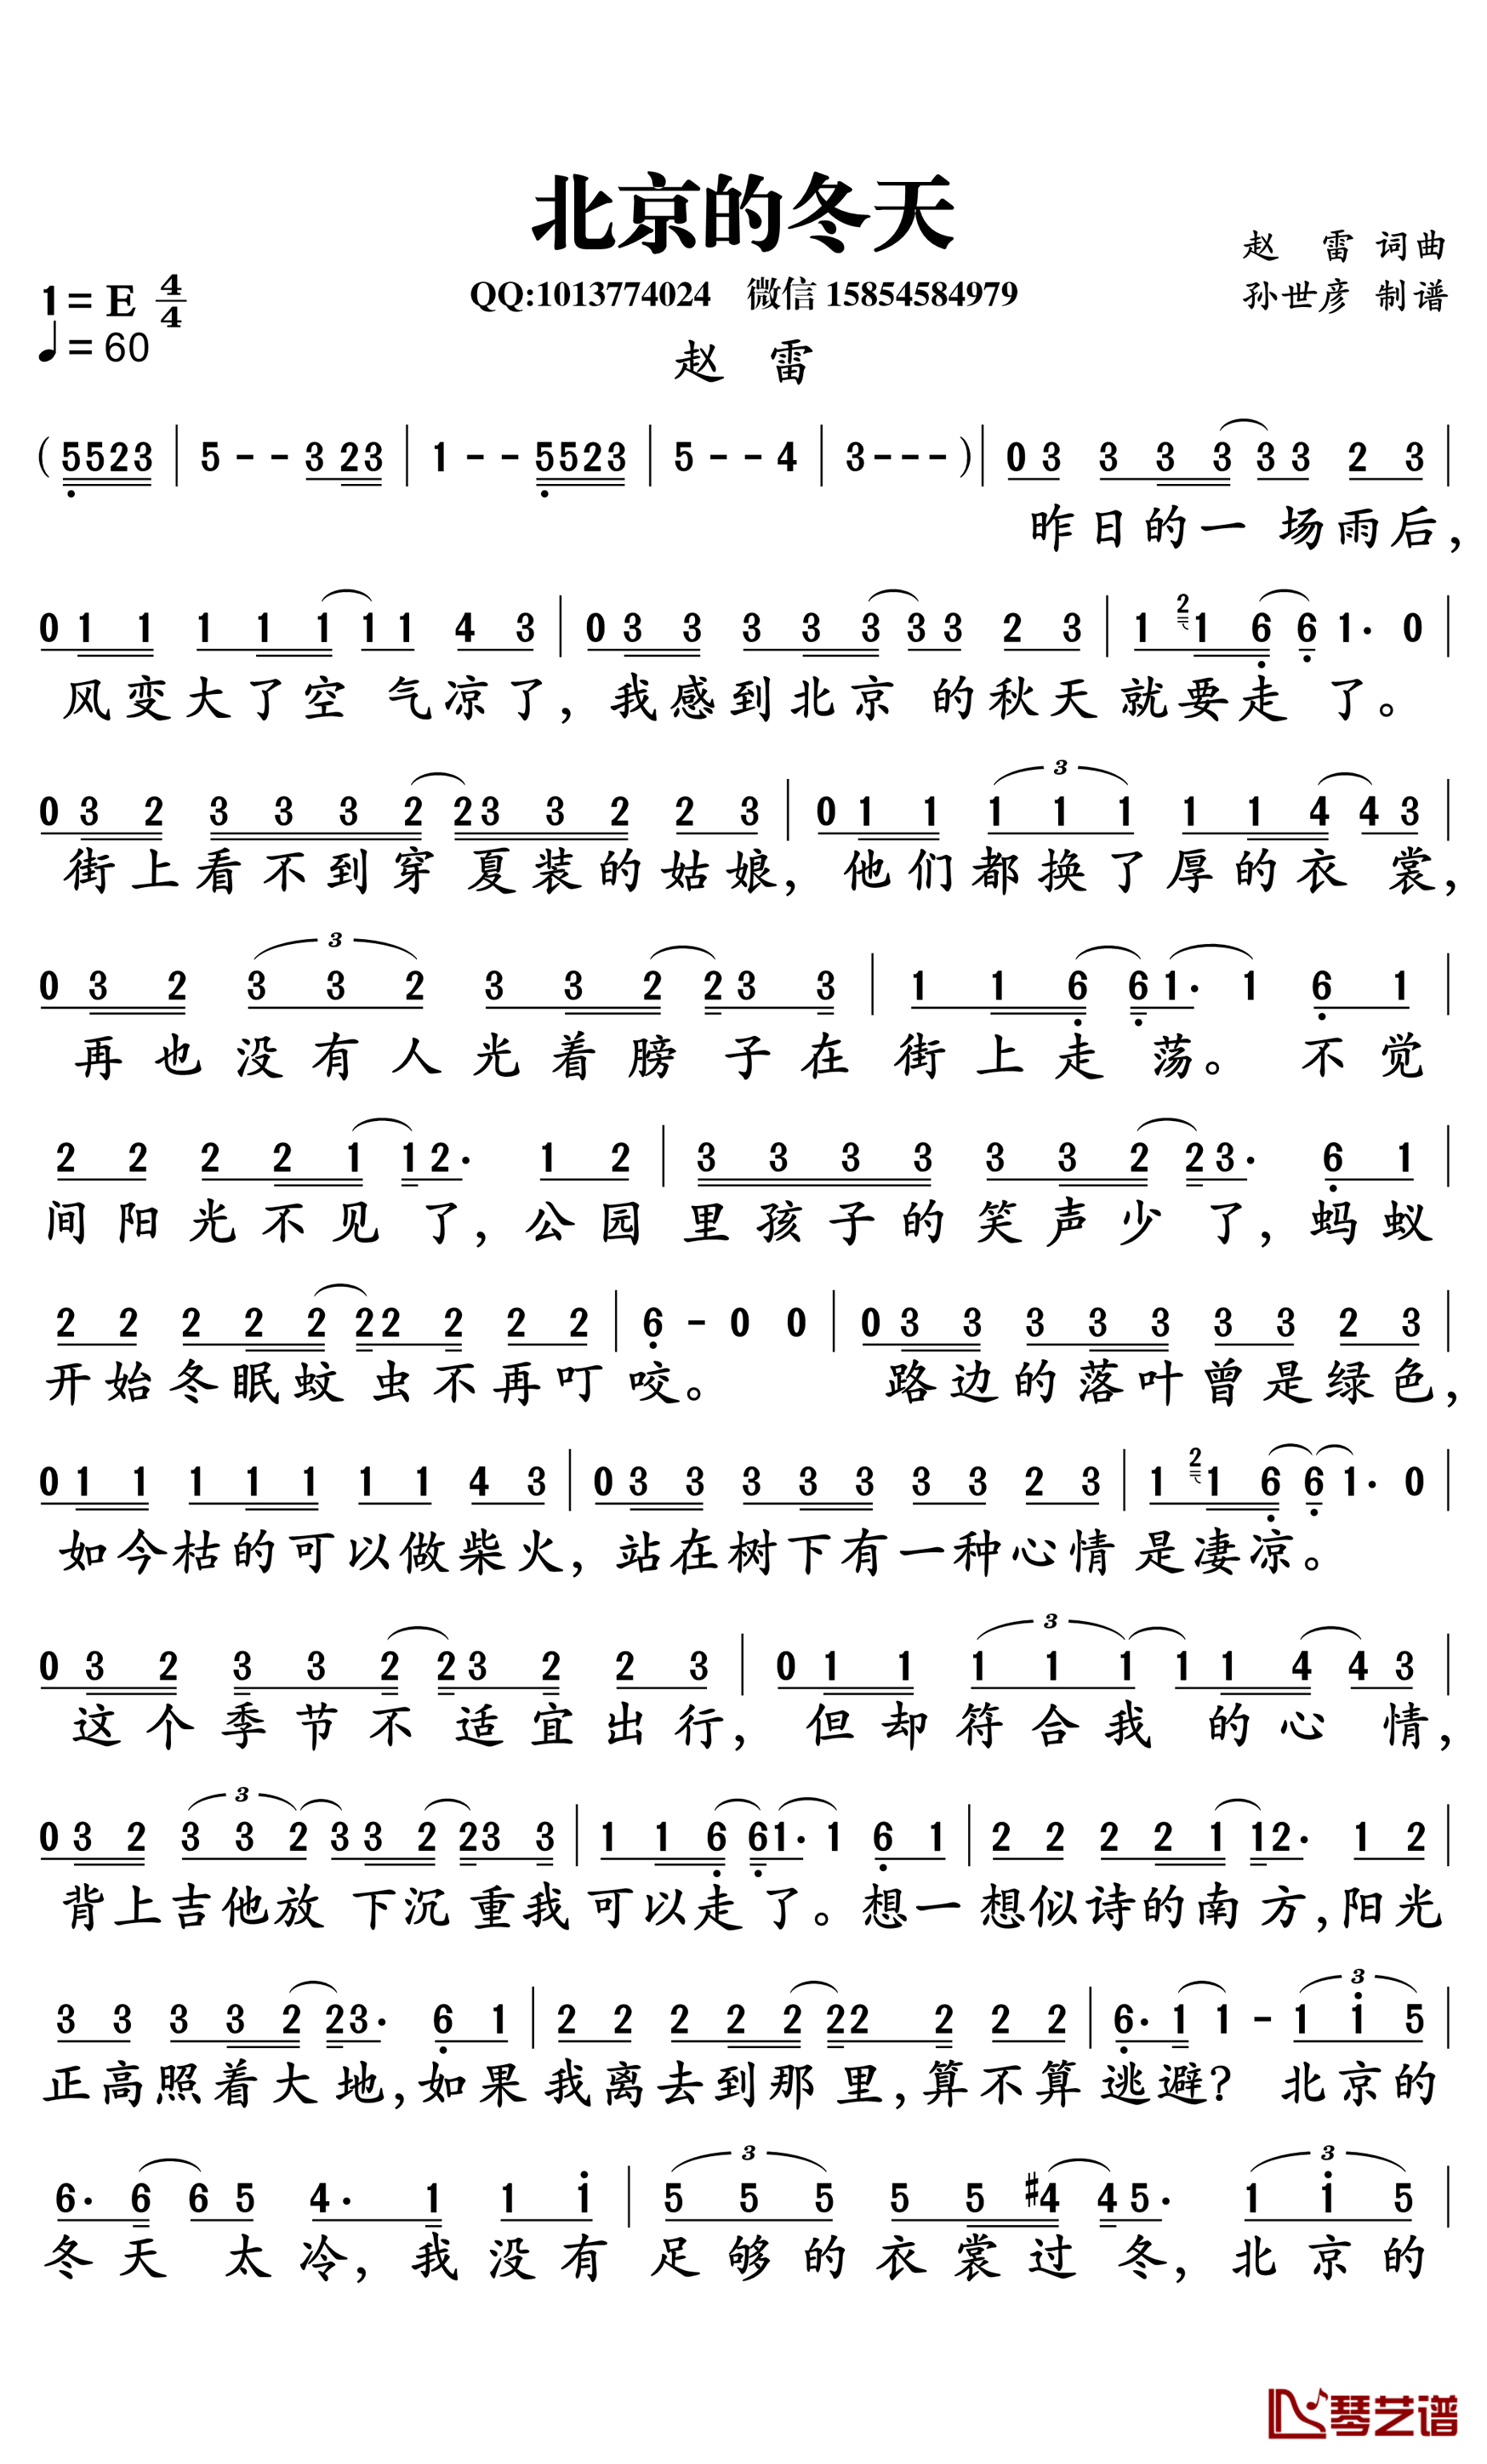 北京的冬天
赵 雷 词曲
1= E 4/4
QQ:1013774024 微信 15854584979
孙世彦 制谱
♩= 60
赵 雷
( 5523 | 5 - - 3 23 | 1 - - 5523 | 5 - - 4 | 3 - - - ) | 0 3 3 3 3 3 3 2 3 |
昨日的一 场雨后，
0 1 1 1 1 1 1 1 4 3 | 0 3 3 3 3 3 3 3 2 3 | 1 2 1 6 6 1· 0 |
风变大了空 气凉了，我感到北京 的秋天就要走 了。
3
0 3 2 3 3 3 2 2 3 3 2 2 3 | 0 1 1 1 1 1 1 1 4 4 3 |
街上看不到穿 夏装的姑娘，他们都换了厚的衣 裳，
3
0 3 2 3 3 2 3 3 2 2 3 3 | 1 1 6 6 1· 1 6 1 |
再也没有人光着膀 子在街上走 荡。 不觉
2 2 2 2 1 1 2· 1 2 | 3 3 3 3 3 3 2 2 3· 6 1 |
间阳光不见 了，公园里孩子的笑声少 了，蚂蚁
2 2 2 2 2 2 2 2 2 2 | 6 - 0 0 | 0 3 3 3 3 3 3 3 2 3 |
开始冬眠蚊 虫不再叮咬。 路边的落叶曾是绿色，
0 1 1 1 1 1 1 1 4 3 | 0 3 3 3 3 3 3 3 2 3 | 1 2 1 6 6 1· 0 |
如今枯的可以做柴火，站在树下有一种心情是凄凉。
3
0 3 2 3 3 2 2 3 2 2 3 | 0 1 1 1 1 1 1 1 4 4 3 |
这个季节不 适宜出行， 但却符合我 的心 情，
3
0 3 2 3 3 2 3 3 2 2 3 3 | 1 1 6 6 1· 1 6 1 | 2 2 2 2 1 1 2· 1 2 |
背上吉他放 下沉 重我可以走 了。想一想似诗的南 方，阳光
3
3 3 3 3 2 2 3· 6 1 | 2 2 2 2 2 2 2 2 2 2 | 6· 1 1 - 1 1 5 |
正高照着大 地，如果我离去到那 里，算不算逃避？ 北京的
3 3
6· 6 6 5 4· 1 1 1 | 5 5 5 5 5 #4 4 5· 1 1 5 |
冬天 太冷，我没有足够的衣裳过 冬，北京的
琴艺谱